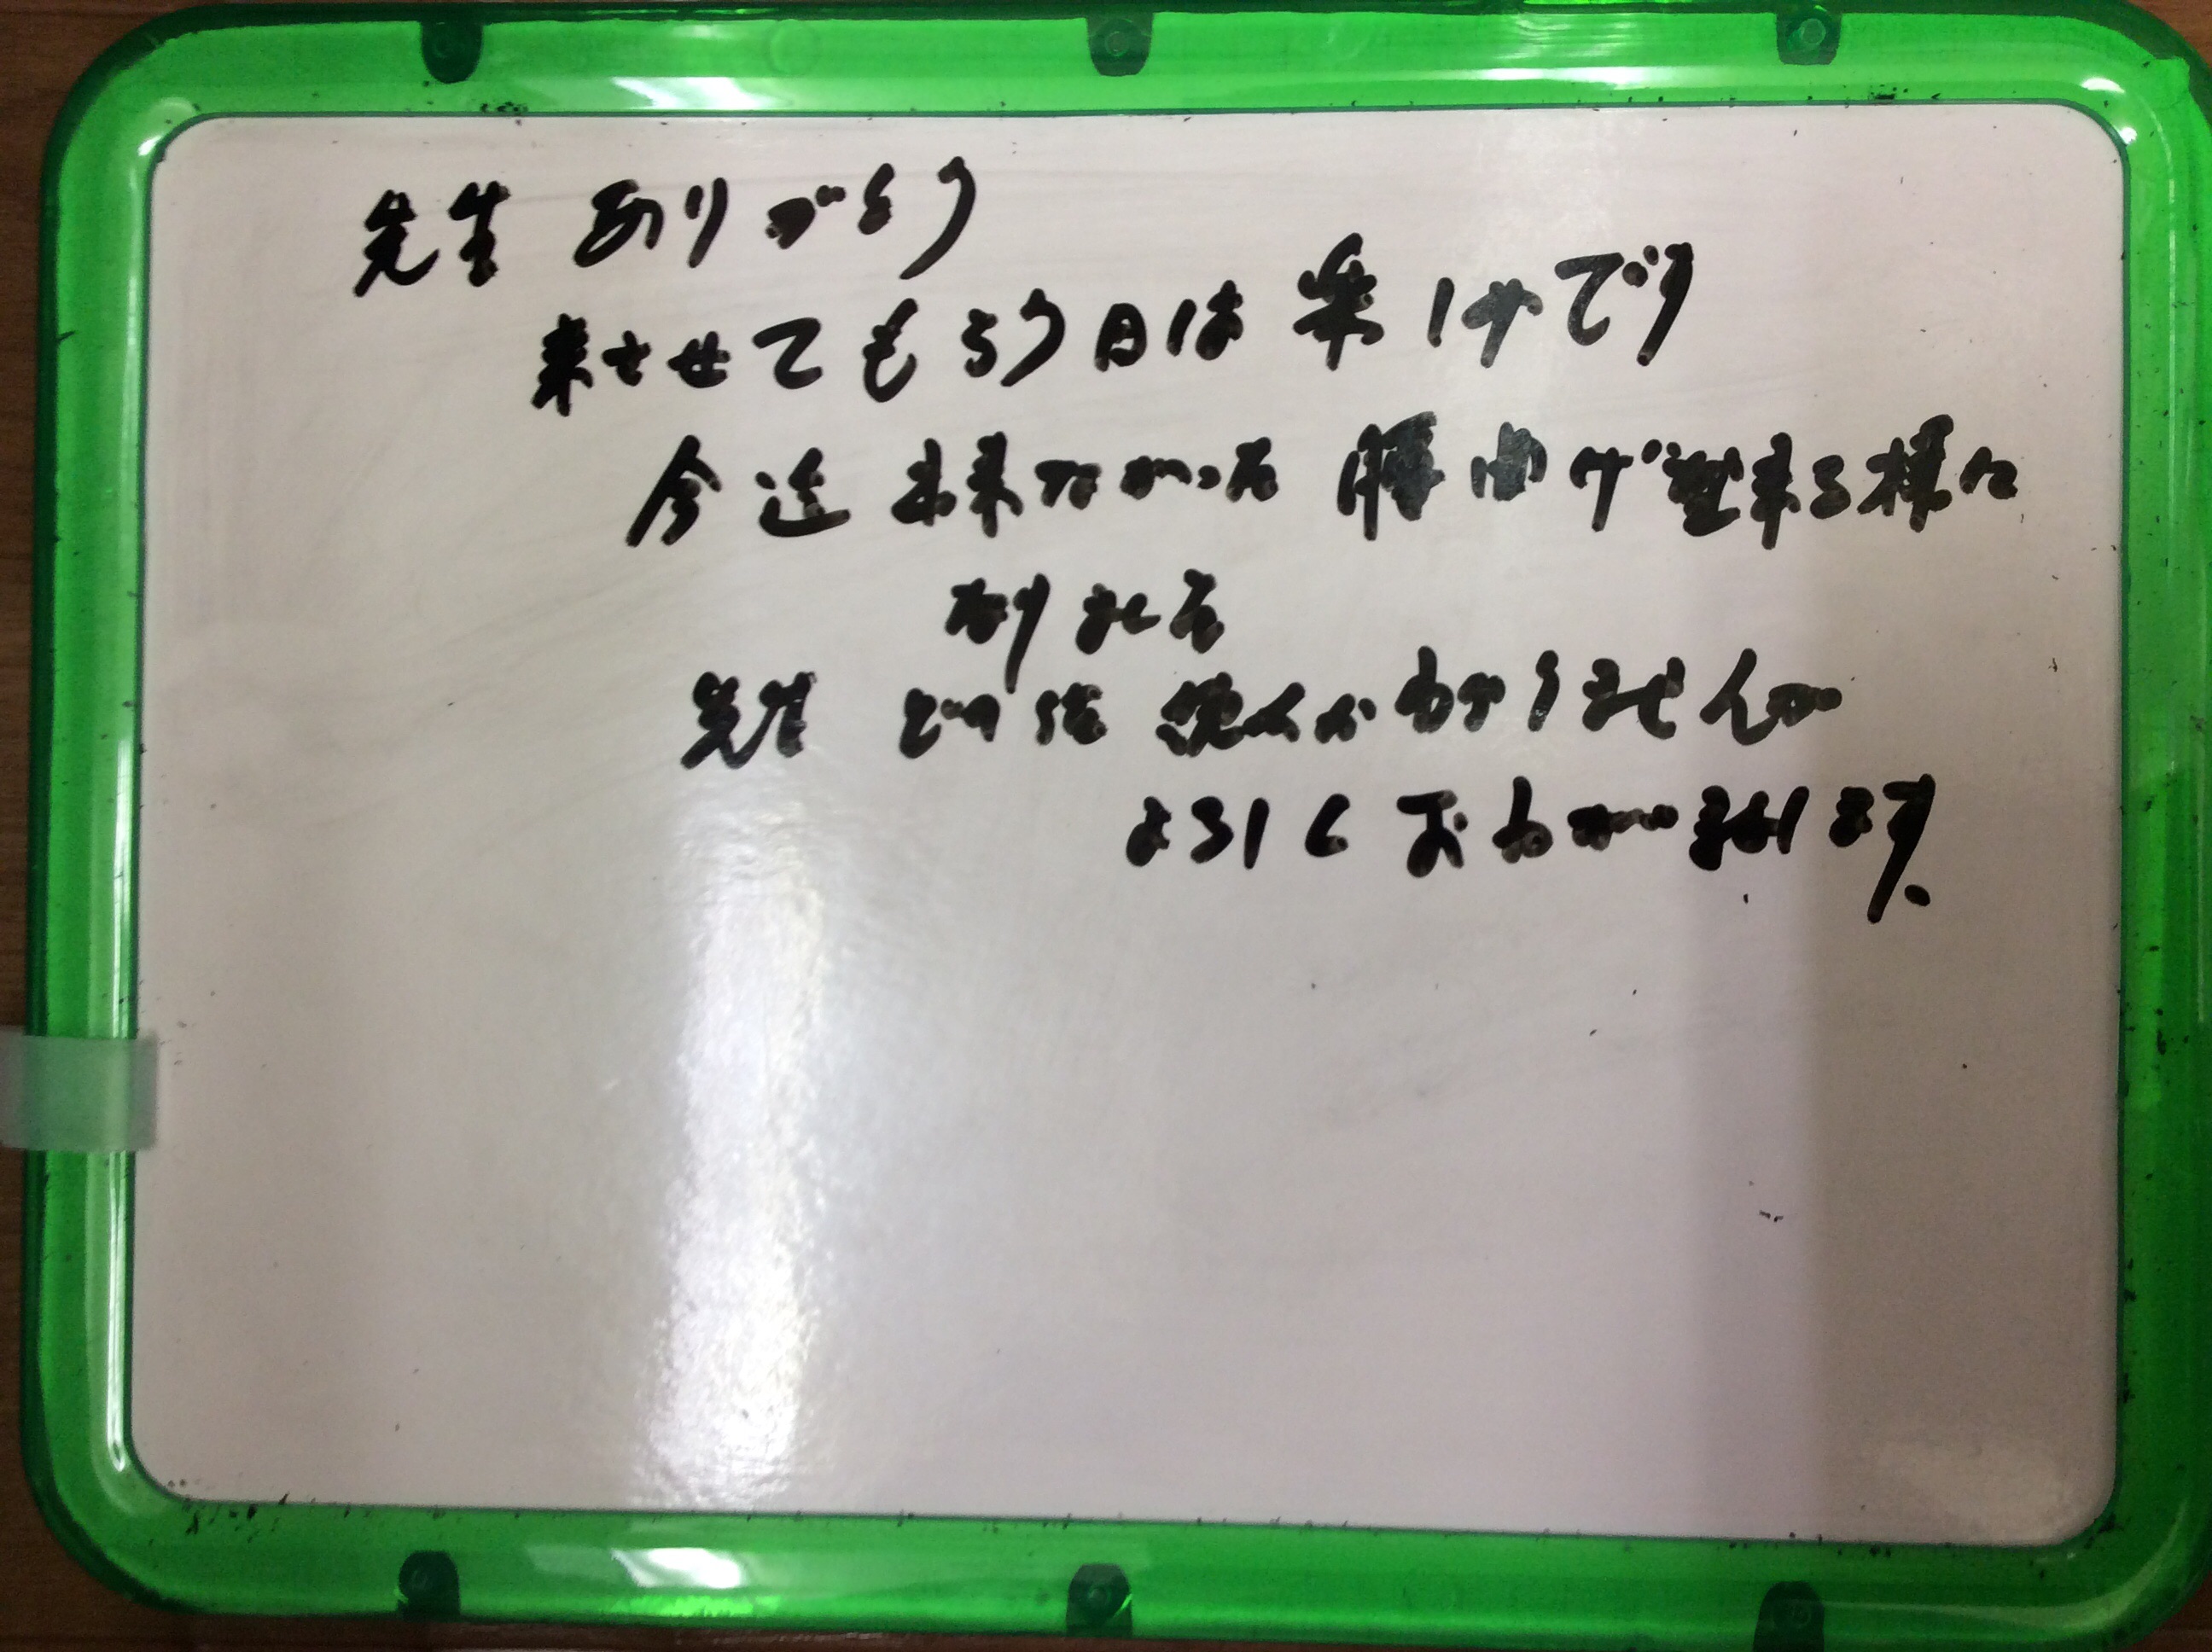 先生 ありがとう
来させてもらう日は 楽しみです
今迄 出来なかった 腰曲げが出来る様に
なりました
先生 どの位 続くか わかりませんが
よろしく おねがいします。